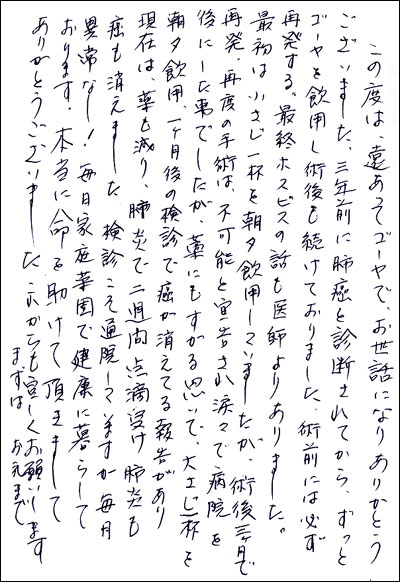 この度は、遠あってゴーヤで、お世話になりありがとう
ございました。三年前に肺癌と診断されてから、ずっと
ゴーヤを飲用し術後も続けておりました。術前には必ず
再発する。最終ホスピスの話も医師よりありました。
最初は小さじ一杯を朝夕飲用していましたが、術後三ヶ月で
再発、再度の手術は、不可能と宣告され涙々で病院を
後にした事でしたが、藁にもすがる思いで、大さじ一杯を
朝夕飲用、一ヶ月後の検診で癌が消えてる報告があり
現在は、薬も減り、肺炎で二週間点滴受け肺炎も
癌も消えました。検診こそ通院してますが毎月
異常なし!毎日家庭菜園で健康に暮らして
おります。本当に命を助けて頂きまして
ありがとうございました。これからも宜しくお願いします
まずは お礼まで